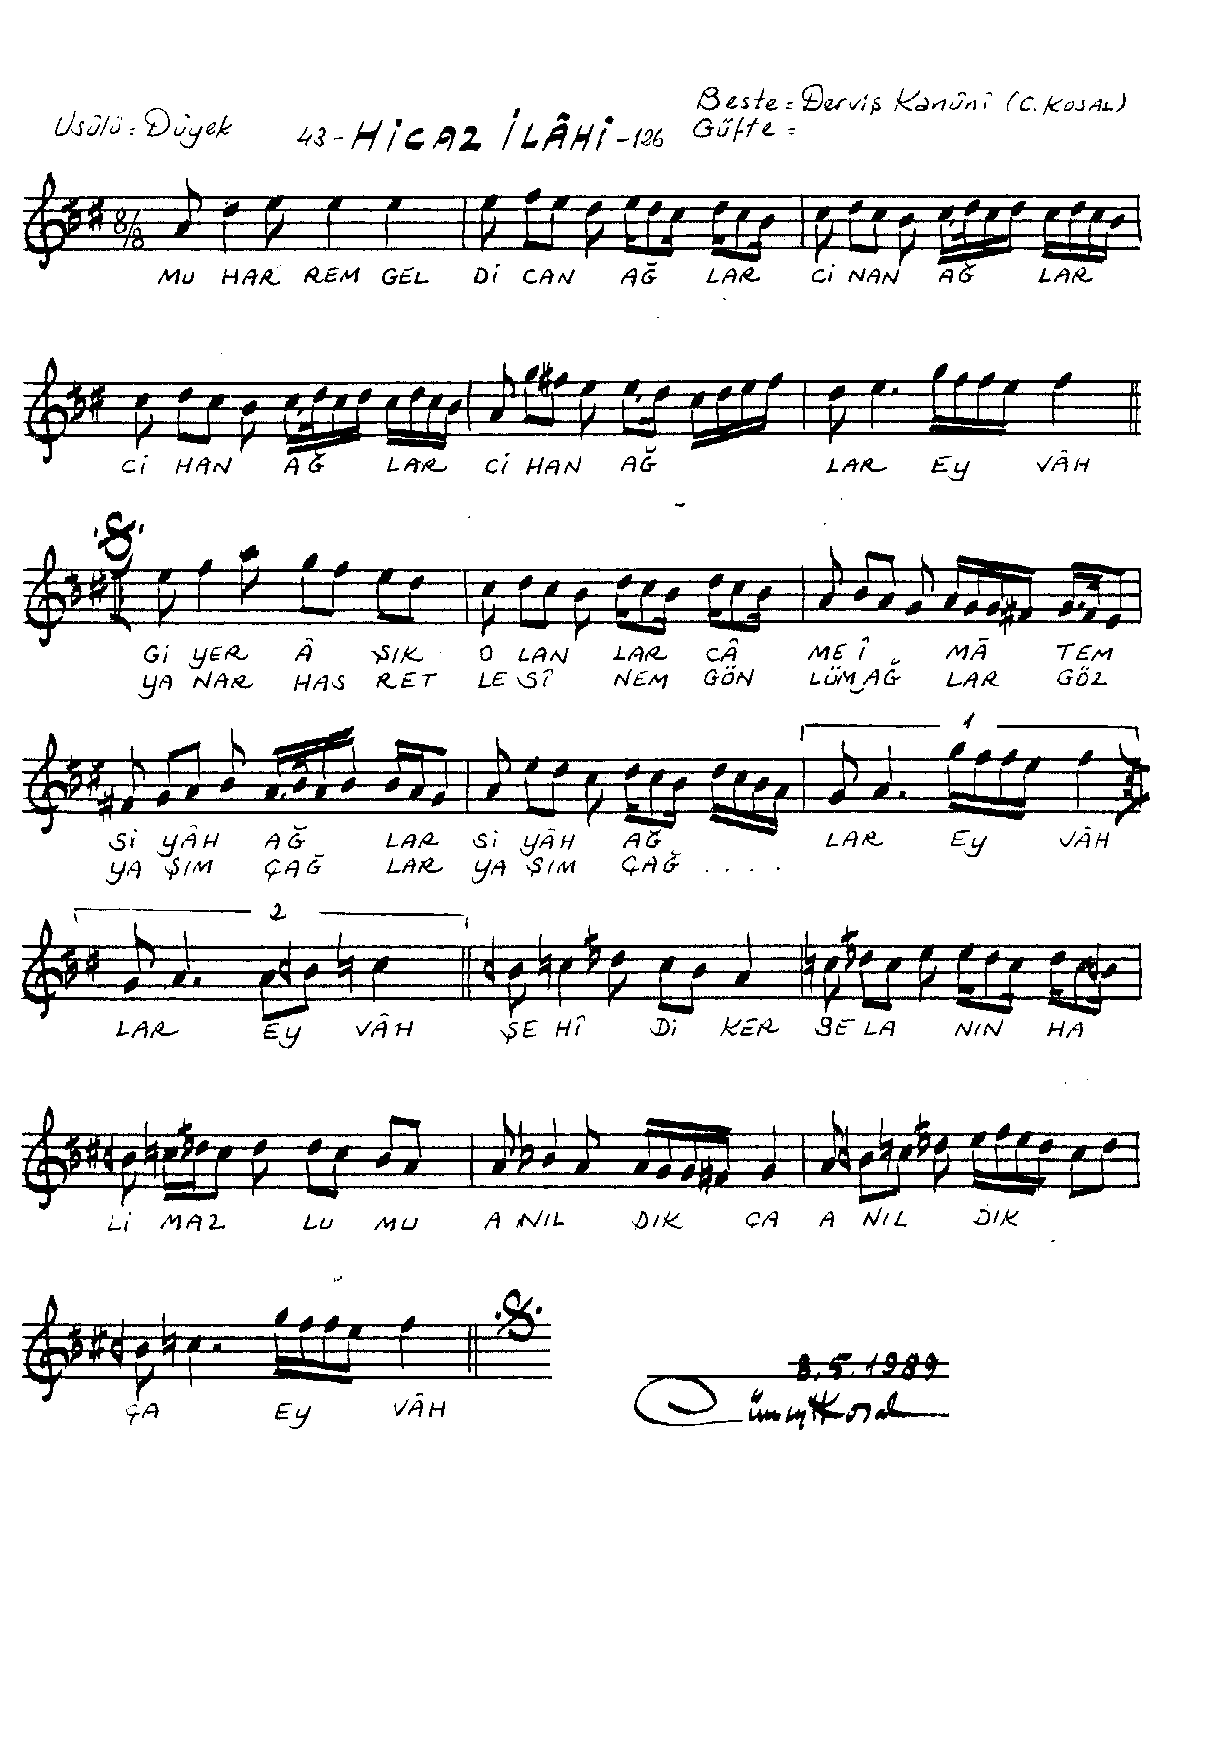 Usûlü: Düyek 43-HİCAZ İLÂHİ-126 Beste: Derviş Kanûnî (C. KOSAL)
Güfte:
8/8
MU HAR REM GEL Dİ CAN AĞ LAR Cİ NAN AĞ LAR
Cİ HAN AĞ LAR Cİ HAN AĞ LAR EY VÂH
Gİ YER Â ŞIK O LAN LAR CÂ ME Î MÂ TEM
YA NAR HAS RET LE SÎ NEM GÖN LÜM AĞ LAR GÖZ
1
Sİ YÂH AĞ LAR Sİ YÂH AĞ LAR EY VÂH
YA ŞIM ÇAĞ LAR YA ŞIM ÇAĞ . . . .
2
LAR EY VÂH ŞE HÎ Dİ KER BE LA NIN HA
Lİ MAZ LU MU A NIL DIK ÇA A NIL DIK
ÇA EY VÂH
8.5.1989
Cüneyt Kosal